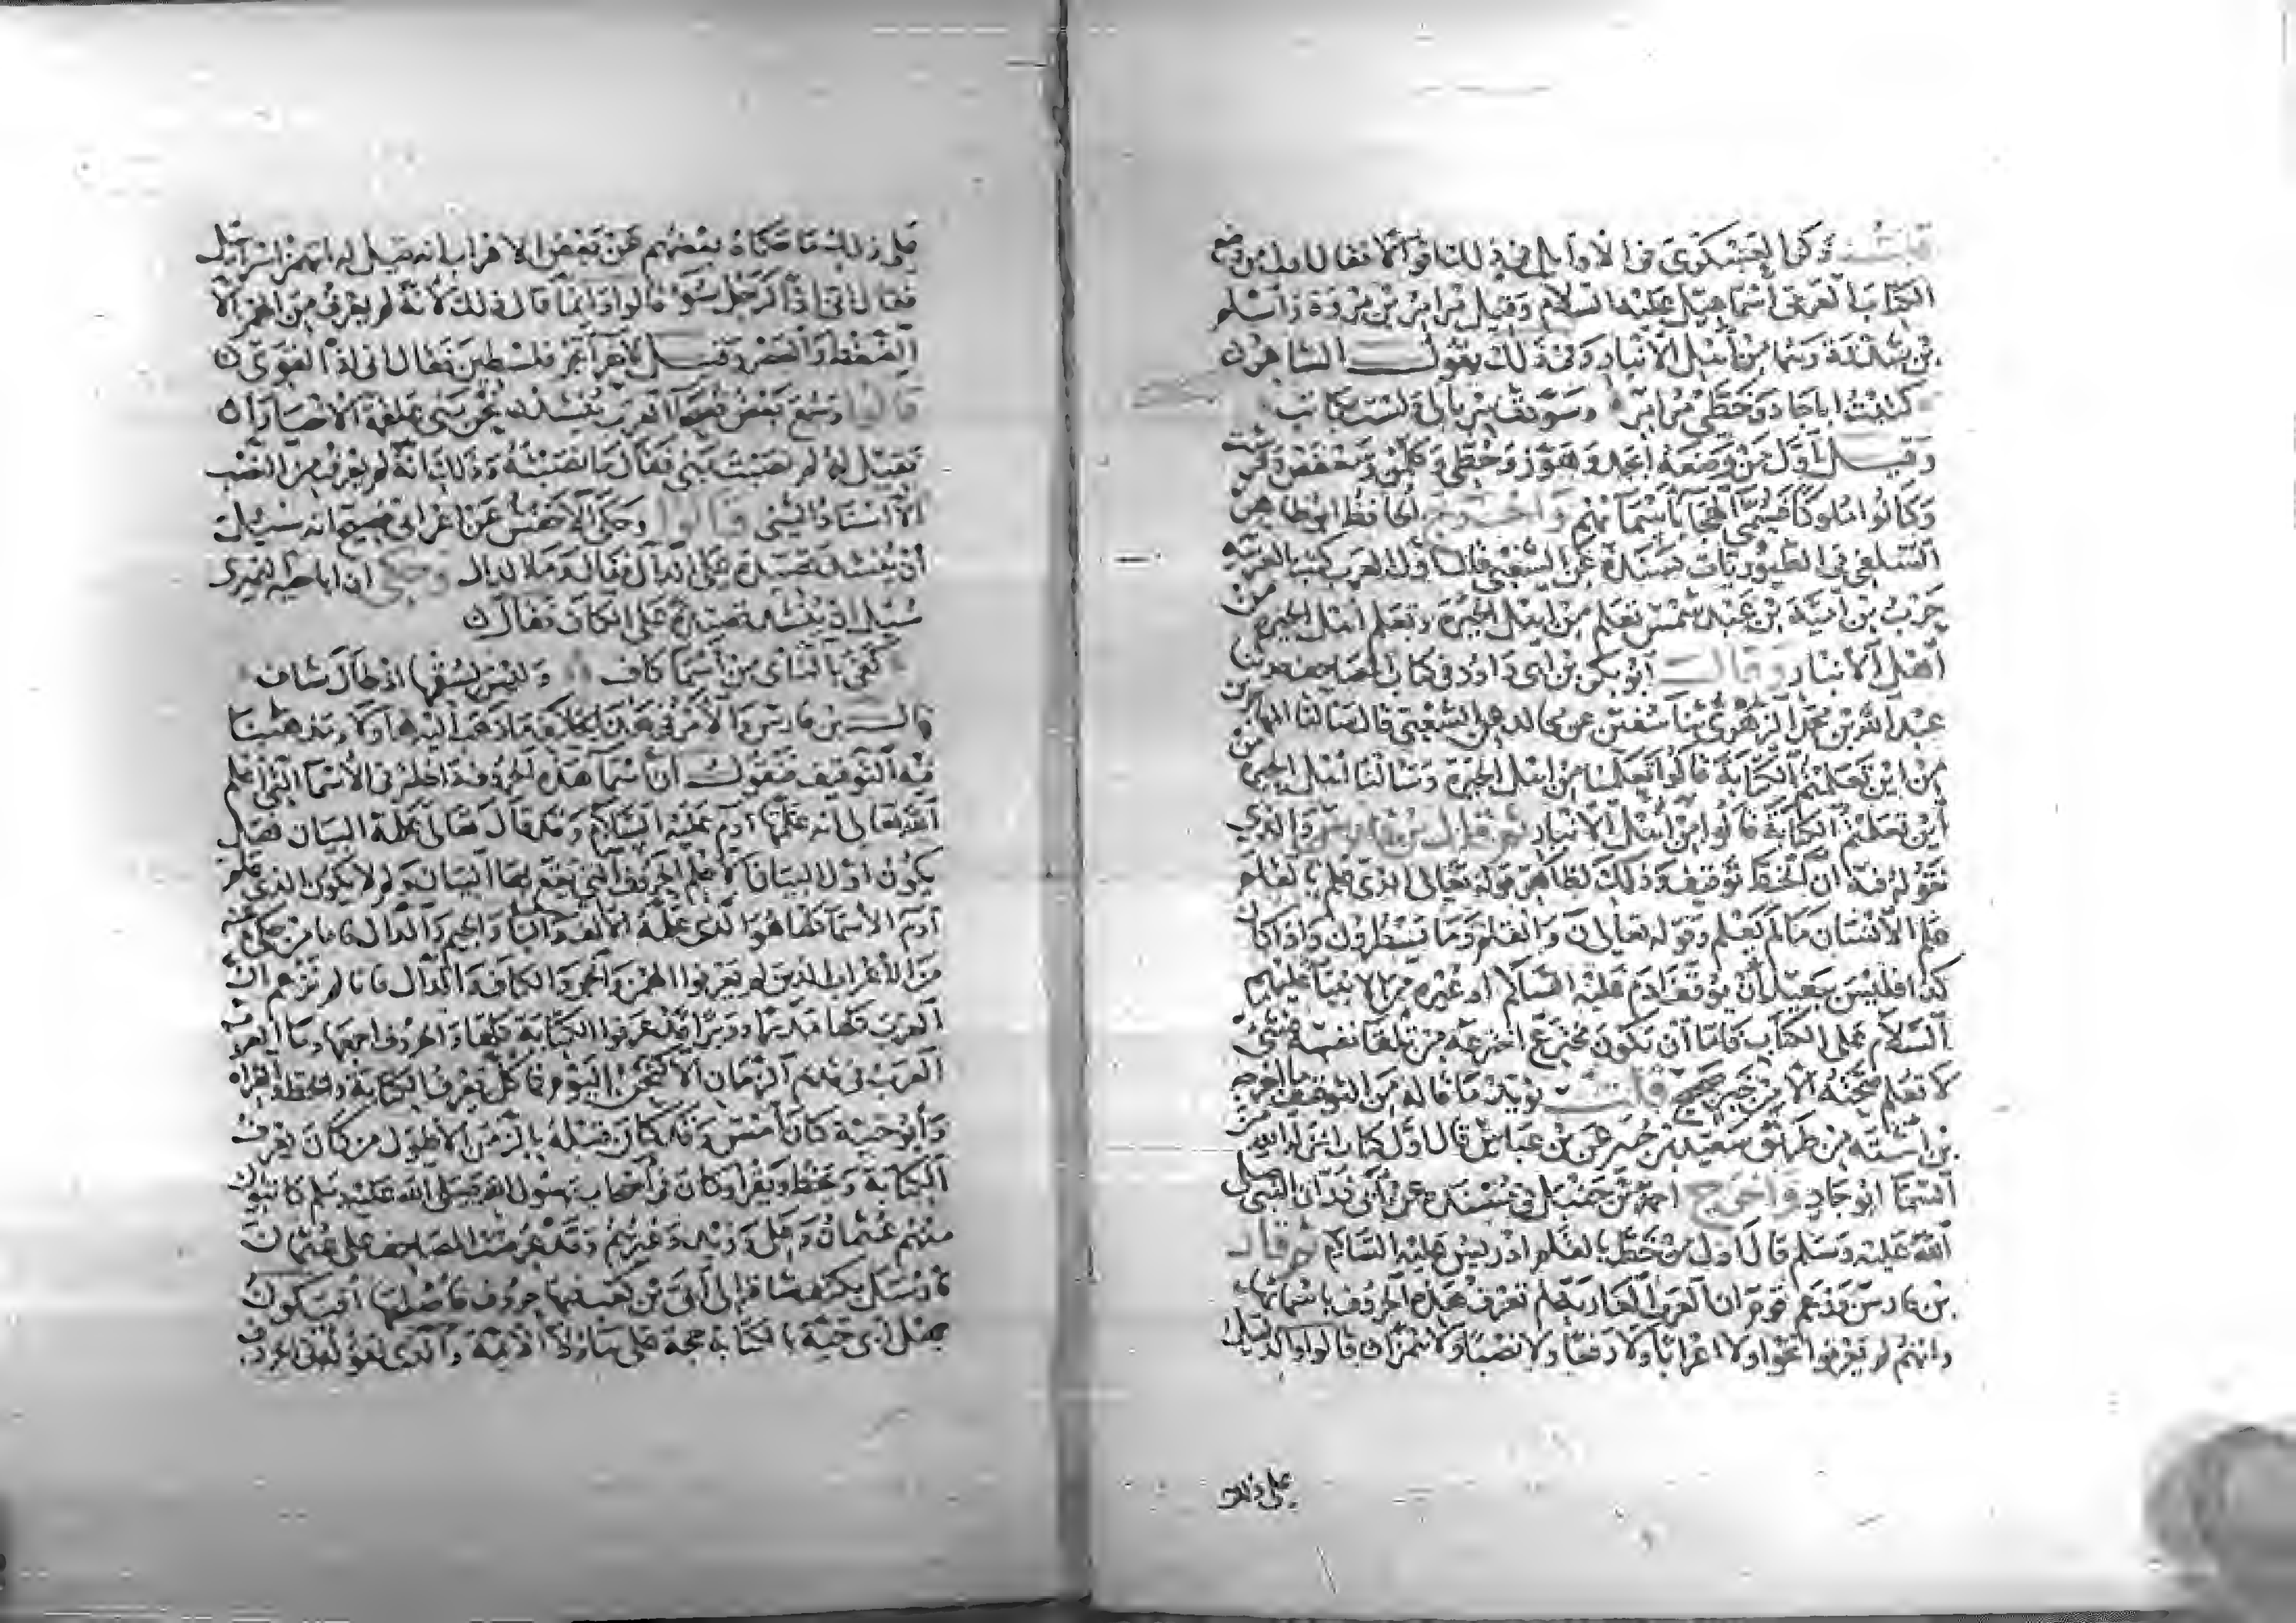 قلت وذكر العسكري في الاوايل في ذلك اقوالا فقال اول من وضع
الكتاب العربي اسماعيل عليه السلام وقيل مرامر بن مروة واسلم
بن سدرة وهما من اهل الانبار وفي ذلك يقول الشاعر
كتبت اباجاد وخطي مرامر وسودت سربالي ولست بكاتب
وقيل اول من وضعه ابجد وهوز وحطي وكلمن وسعفص وقرشت
وكانوا ملوكا فسمي الهجا باسمائهم واخرج الحافظ ابو طاهر
السلفي في الطيوريات بسنده عن الشعبي قال اول العرب كتب بالعربية
حرب بن امية بن عبد شمس تعلم من اهل الحيرة وتعلم اهل الحيرة من
اهل الانبار وقال ابو بكر بن ابي داود في كتاب المصاحف حدثنا
عبد الله بن محمد الزهري ثنا سفين عن مجالد عن الشعبي قال سالنا المهاجرين
من اين تعلمتم الكتابة قالوا تعلمنا من اهل الحيرة وسالنا اهل الحيرة من
اين تعلمتم الكتابة قالوا من اهل الانبار ثم قال بن فارس والذي
نقوله فيه ان الخط توقيف وذلك لظاهر قوله تعالى الذي علم بالقلم
علم الانسان ما لم يعلم وقوله تعالى ن والقلم وما يسطرون واذا كان
كذا فليس ببعيد ان يوقف ادم عليه السلام او غيره من الانبيا عليهم
السلام على الكتاب فاما ان يكون مخترع اخترعه من تلقا نفسه فشي
لا تعلم صحته الا من خبر صحيح قلت يويد ما قاله من التوقيف ما اخرجه
بن اشته من طريق سعيد بن جبير عن بن عباس قال اول كتاب انزله الله من
السما ابو جاد واخرج احمد بن حنبل في مسنده عن ابي ذر ان النبي صلى
الله عليه وسلم قال اول من خط بالقلم ادريس عليه السلام ثم قال
بن فارس وزعم قوم ان العرب العاربة لم تعرف هذه الحروف باسمائها
وانهم لم يعرفوا نحوا ولا اعرابا ولا رفعا ولا نصبا ولا همزا قالوا والدليل
على ذلك
على ذلك ما حكاه بعضهم عن بعض الاعراب انه قيل له اتهمز اسرائيل
فقال اني اذا لرجل سوء قالوا وانما قال ذلك لانه لم يعرف من الهمز الا
الضغط والعصر وقيل لاخر اتجر فلسطين فقال اني اذا لقوي
قالوا وسمع بعض فصحا العرب ينشد نحن بني علقمة الاخيارا
فقيل له لم نصبت بني فقال ما نصبته وذلك انه لم يعرف من النصب
الا اسناد الشي قالوا وحكى الاخفش عن اعرابي فصيح انه سئل
ان ينشد قصيدة على الدال فقال وما الدال وحكي ان اباحية النميري
سئل ان ينشد قصيدة على الكاف فقال
كفى بالناي من اسما كاف وليس لسقمها اذ طال شاف
قال بن فارس والامر في هذا بخلاف ما ذهب اليه هاولاء ومذهبنا
فيه التوقيف فنقول ان اسما هذه الحروف داخلة في الاسما التي اعلم
الله تعالى انه علمها ادم عليه السلام وقد قال تعالى علمه البيان فهل
يكون اول البيان الا علم الحروف التي يقع بها البيان ولم لا يكون الذي علم
ادم الاسما كلها هو الذي علمه الالف والبا والجيم والدال فاما من حكي عنه
من الاعراب الذين لم يعرفوا الهمز والجر والكاف والدال فانا لم نزعم ان
العرب كلها مدرا ووبرا قد عرفوا الكتابة كلها والحروف اجمعها وما العرب
العرب في قديم الزمان الا كنحن اليوم فما كل يعرف الكتابة والخط والقراة
وابو حية كان امس وقد كان قبله بالزمن الاطول من كان يعرف
الكتابة ويخط ويقرا وكان في اصحاب رسول الله صلى الله عليه وسلم كاتبون
منهم عثمان وعلي وزيد وغيرهم وقد عرضت المصاحف على عثمان
فارسل بكتف شاة الى ابي بن كعب فيها حروف فاصلحها افيكون
جهل ابي حية بالكتابة حجة على هاولا الايمة والذي نقوله في الحروف